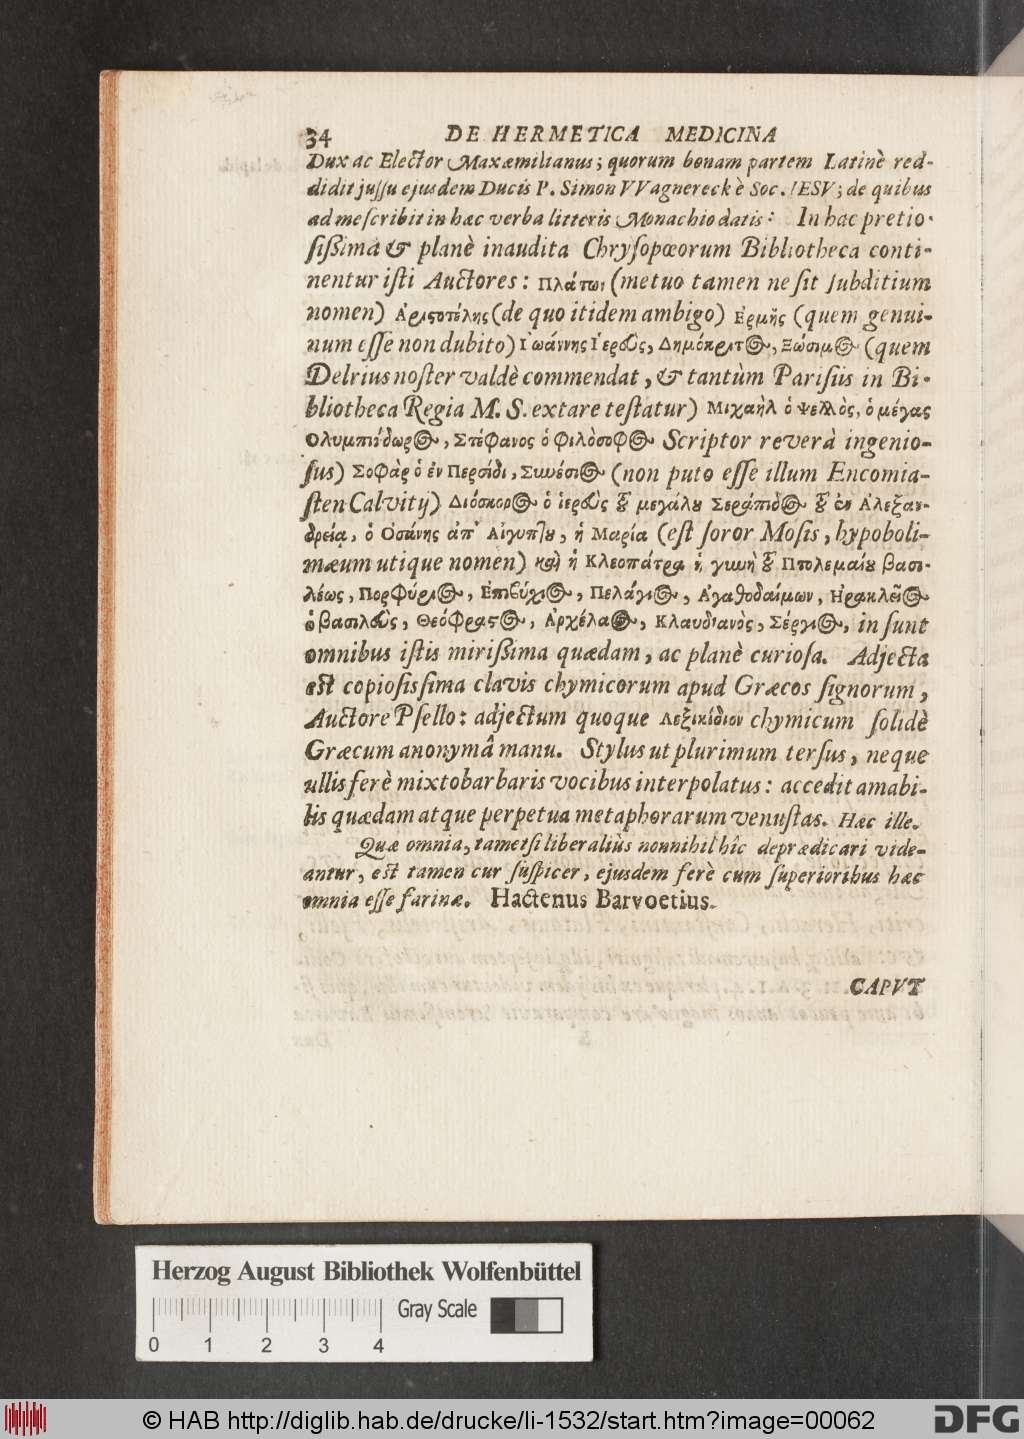 34 DE HERMETICA MEDICINA
Dux ac Elector Maxæmilianus; quorum bonam partem Latinè red-
didit jussu ejusdem Ducis P. Simon VVagnereckè Soc. IESV; de quibus
ad me scribit in hæc verba litteris Monachio datis: In hac pretio-
sißima & planè inaudita Chrysopœorum Bibliotheca conti-
nentur isti Auctores: Πλάτων (metuo tamen ne sit subditium
nomen) Ἀριστοτέλης (de quo itidem ambigo) Ἑρμῆς (quem genui-
num esse non dubito) Ἰωάννης Ἱερεὺς, Δημόκριτος, Ζώσιμος (quem
Delrius noster valdè commendat, & tantùm Parisiis in Bi-
bliotheca Regia M. S. extare testatur) Μιχαὴλ ὁ Ψελλὸς, ὁ μέγας
Ολυμπιόδωρος, Στέφανος ὁ φιλόσοφος Scriptor reverà ingenio-
sus) Σοφὰρ ὁ ἐν Περσίδι, Συνέσιος (non puto esse illum Encomia-
sten Calvitij) Διόσκορος ὁ ἱερεὺς τοῦ μεγάλου Σεράπιδος τοῦ ἐν Αλεξαν-
δρείᾳ, ὁ Οσάνης ἀπ' Αἰγυπτου, ἡ Μαρία (est soror Mosis, hypoboli-
mæum utique nomen) καὶ ἡ Κλεοπάτρα ἡ γυνὴ τοῦ Πτολεμαίου βασι-
λέως, Πορφύριος, Επιβύχιος, Πελάγιος, Αγαθοδαίμων, Ηρακλεῖος
ὁ βασιλεὺς, Θεόφραστος, Αρχέλαος, Κλαυδιανὸς, Σέργιος, insunt
omnibus istis mirißima quædam, ac planè curiosa. Adjecta
est copiosissima clavis chymicorum apud Græcos signorum,
Auctore Psello: adjectum quoque Λεξικίδιον chymicum solidè
Græcum anonymâ manu. Stylus ut plurimum tersus, neque
ullis ferè mixtobarbaris vocibus interpolatus: accedit amabi-
lis quædam atque perpetua metaphorarum venustas. Hæc ille.
Quæ omnia, tametsi liberaliùs nonnihil hîc deprædicari vide-
antur, est tamen cur suspicer, ejusdem ferè cum superioribus hæc
omnia esse farinæ. Hactenus Barvoetius.
CAPVT
Herzog August Bibliothek Wolfenbüttel
Gray Scale
0 1 2 3 4
© HAB http://diglib.hab.de/drucke/li-1532/start.htm?image=00062
DFG